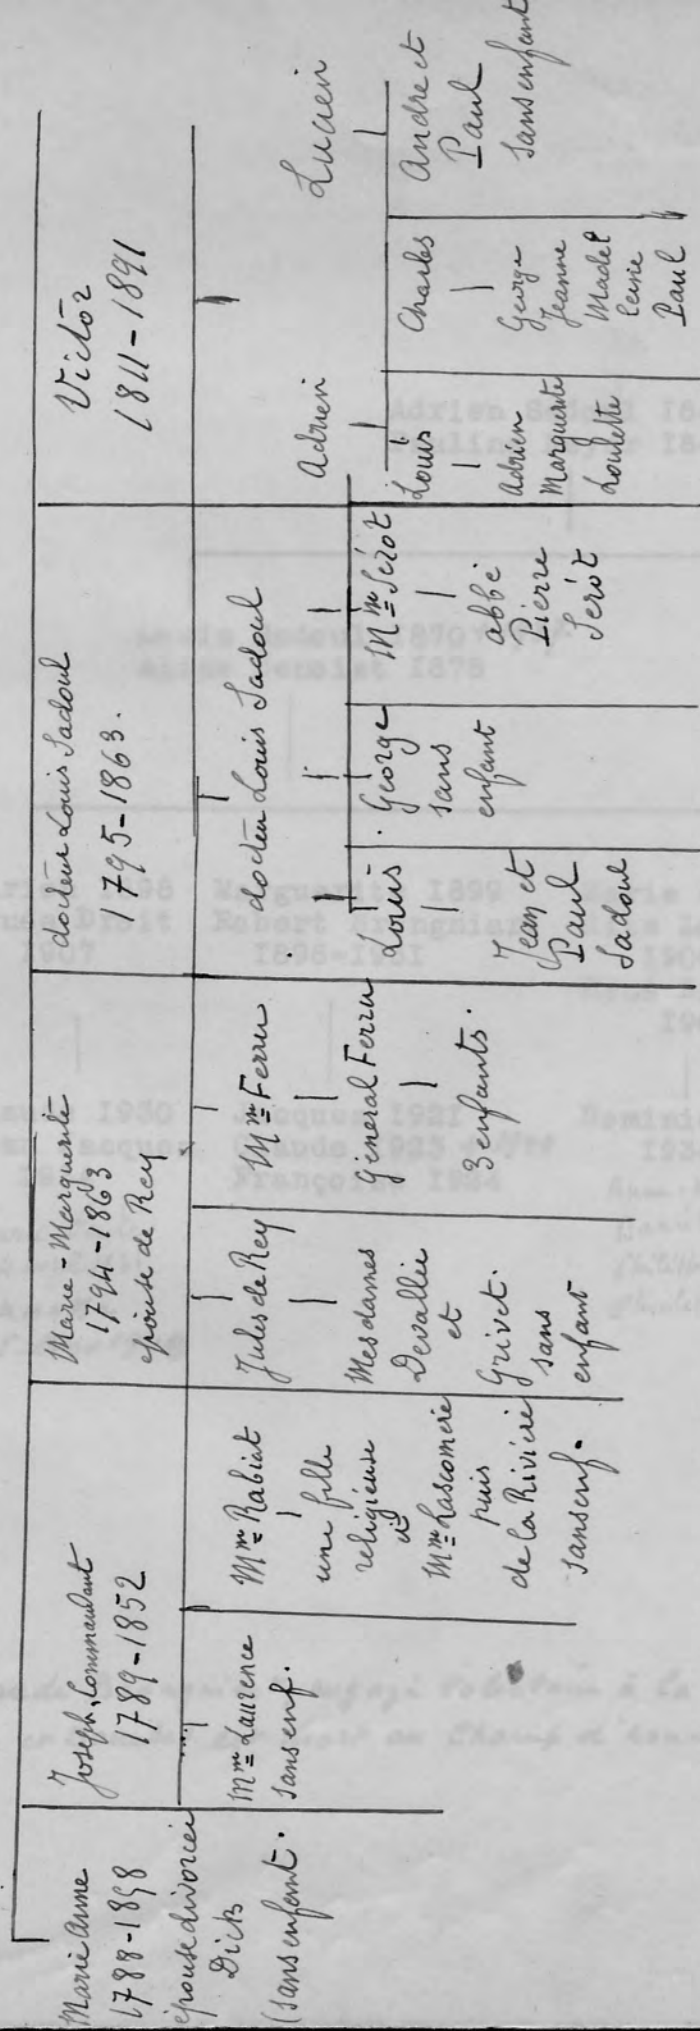 Marie Anne
1788-1858
épouse divorcée
Dick
(sans enfant.
Joseph, Commandant
1789-1852
Mme Laurence
sans enf.
Mme Rabiet
une fille
religieuse
et
Mme Lascomère
puis
de la Rivière
sans enf.
Marie-Marguerite
1794-1863
épouse de Rey
Jules de Rey
Mesdames
Devallée
et
Grivet.
sans
enfant
Mme Ferru
Général Ferru
3 enfants.
docteur Louis Sadoul
1795-1863.
docteur Louis Sadoul
Louis
Jean et
Paul
Sadoul
George
sans
enfant
Mme Sérot
abbé
Pierre
Serot
Victor
1811-1891
Adrien
Louis
Adrien
Marguerite
Loulette
Charles
George
Jeanne
Madel
leine
Paul
Lucien
André et
Paul
sans enfant